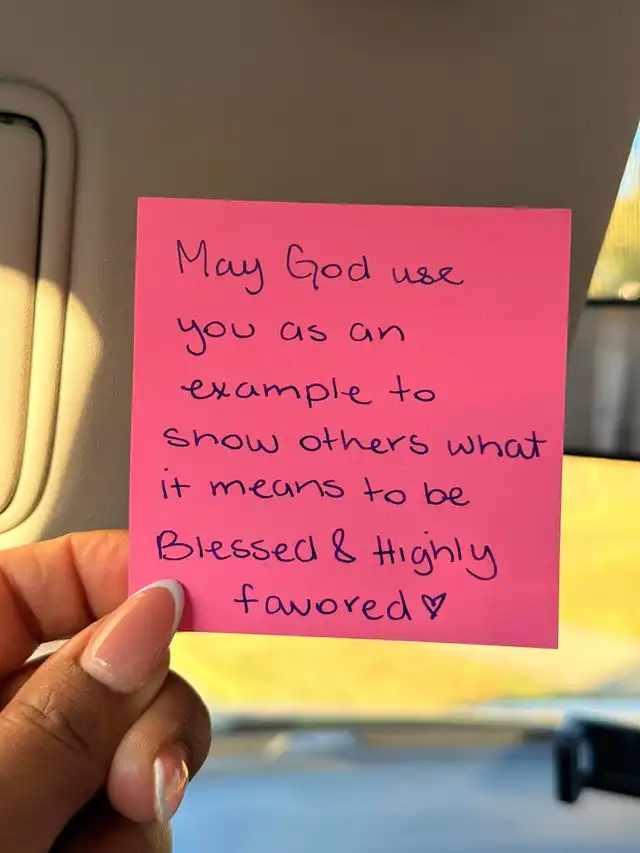 May God use
you as an
example to
show others what
it means to be
Blessed & Highly
favored ♡